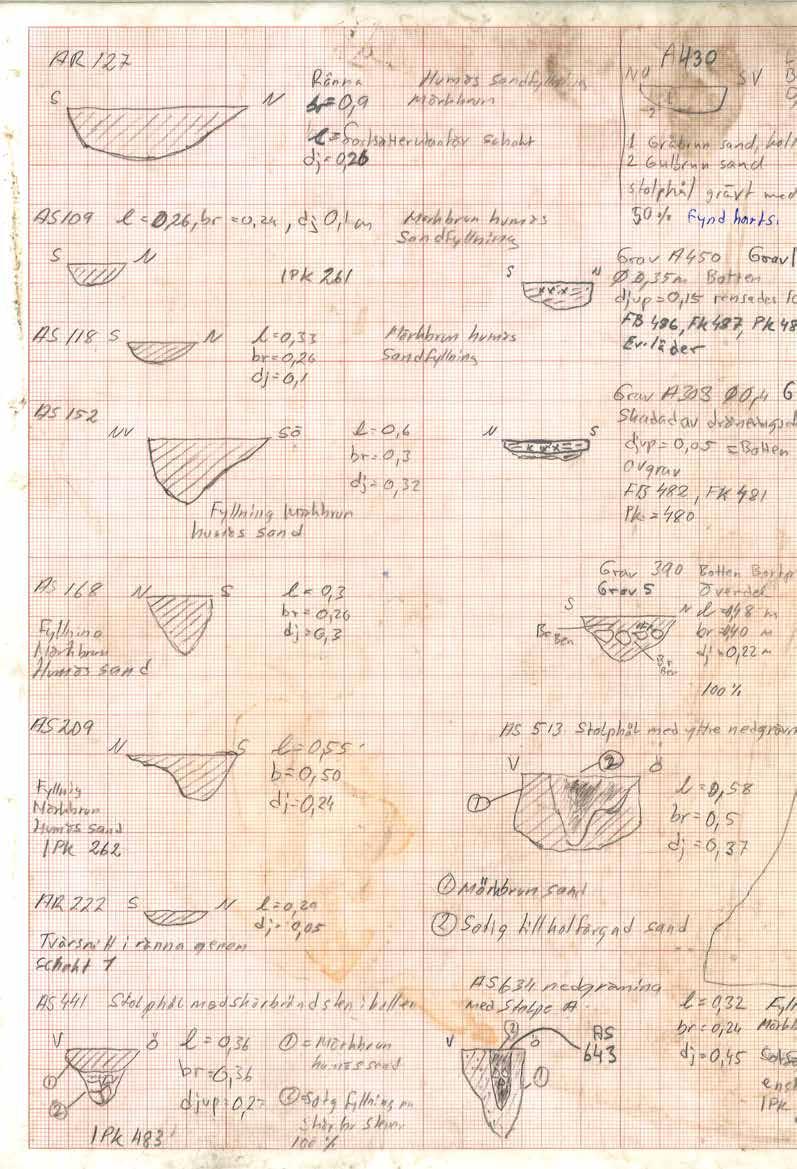 AR 127
S N
Ränna
br=0,9
l=fortsätter utanför schakt
dj=0,26
Humös sandfyllning
Mörkbrun
AS109 l=0,26, br=0,24, dj 0,1 m
Mörkbrun humös
Sandfyllning
S N
1PK 261
AS 118 S N
l=0,33
br=0,26
dj=0,1
Mörkbrun humös
Sandfyllning
AS 152
NV SÖ
l=0,6
br=0,3
dj=0,32
Fyllning mörkbrun
humös sand
AS 168 N S
l=0,3
br=0,26
dj=0,3
Fyllning
Mörkbrun
Humös sand
AS209
N S
l=0,55
b=0,50
dj=0,24
Fyllnig
Mörkbrun
Humös sand
1PK 262
AR 222 S N
dj=0,05
Tvärsnitt i ränna genom
schakt 1
AS441 Stolphål med skärbränd sten i botten
V Ö
l=0,36
br=0,36
①=Mörkbrun
humös sand
② Sotig fyllning
100 %
① ②
1PK 483
A430
SV
1 2
1 Gråbrun sand,
2 Gulbrun sand
stolphål grävt med
50% Fynd harts.
Grav A450
S N
Ø 0,35m Botten
djup=0,15 rensades
FB 486, FK487, PK48
Ev. läder
Grav A308 Ø0,4
Skadad av
N S
djup=0,05 =Botten
av grav
FB 482, FK 481
PK=480
Grav 390 Botten
Grav 5 Överdel
S N
l=0,48 m
br=0,40 m
dj=0,22 m
Ben
Ben
100 %
AS 513 Stolphål med yttre
V ② Ö
①
l=0,58
br=0,5
dj=0,37
① Mörkbrun sand
② Sotig till kolfärgad sand
AS634 nedgrävning
med Stolpe A.
V ② Ö
①
AS
643
l=0,32
br=0,24
dj=0,45
1PK